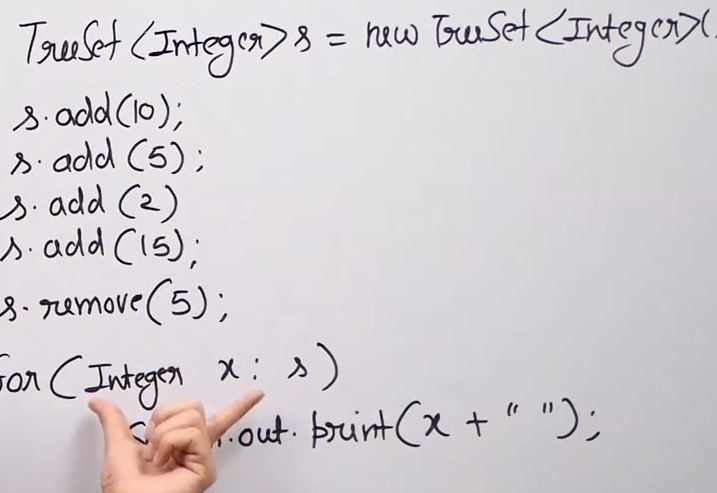 TreeSet<Integer> s = new TreeSet<Integer>(
s.add(10);
s.add(5);
s.add(2)
s.add(15);
s.remove(5);
for(Integer x: s)
.out.print(x + " ");